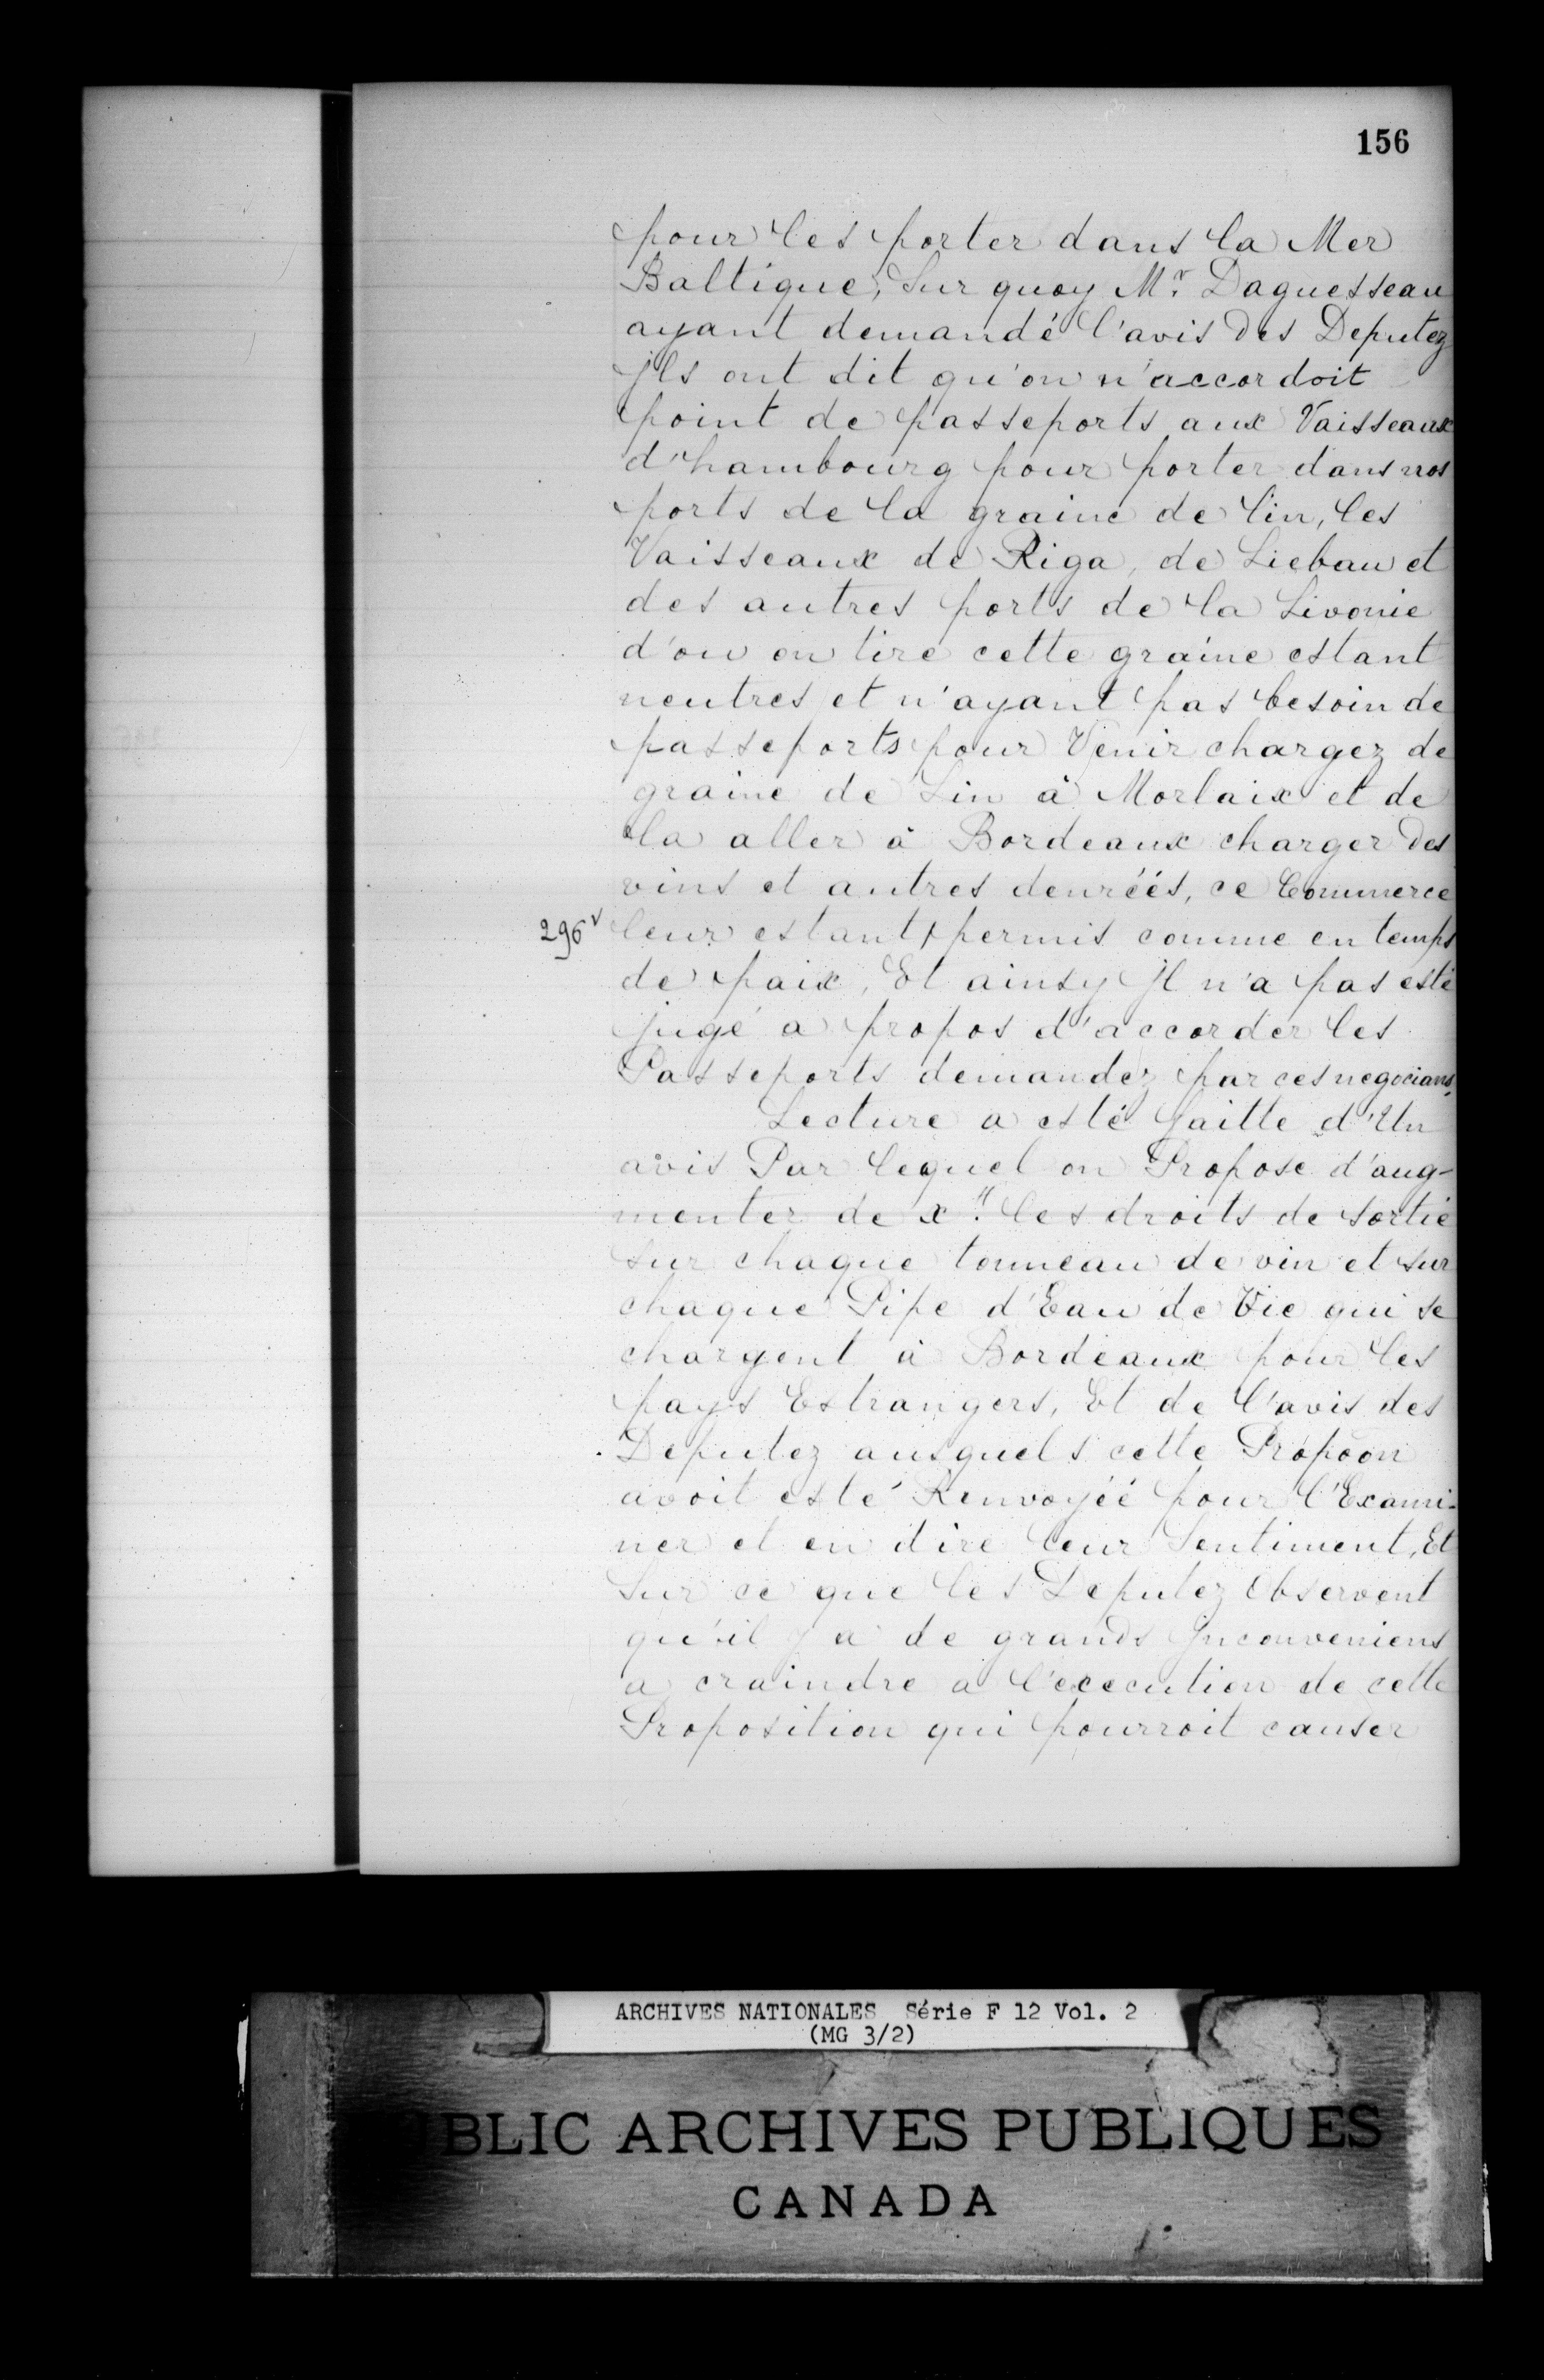 156
pour les porter dans la Mer
Baltique, Sur quoy Mr. Daguesseau
ayant demandé l'avis des Deputez
jls ont dit qu'on n'accordoit
point de passeports aux Vaisseaux
d'hambourg pour porter dans nos
ports de la graine de lin, les
Vaisseaux de Riga, de Liebau et
des autres ports de la Livonie
d'ou on tire cette graine estant
neutres et n'ayant pas besoin de
passeports pour Venir chargez de
graine de Lin à Morlaix et de
la aller à Bordeaux charger des
vins et autres denréés, ce Commerce
296v leur estant permis comme en temps
de paix, Et ainsy jl n'a pas esté
jugé a propos d'accorder les
Passeports demandez par ces negocians.
Lecture a esté faitte d'Un
avis Par lequel on Propose d'aug-
menter de x.tt les droits de sortie
sur chaque tonneau de vin et sur
chaque Pipe d'Eau de Vie qui se
chargent à Bordeaux pour les
pays Estrangers, Et de l'avis des
Deputez ausquels cette Propõon
avoit esté Renvoyéé pour l'Exami-
ner et en dire leur Sentiment, Et
Sur ce que les Deputez Observent
qu'il y a de grands jnconveniens
a craindre a l'execution de cette
Proposition qui pourroit causer
ARCHIVES NATIONALES Série F 12 Vol. 2
(MG 3/2)
PUBLIC ARCHIVES PUBLIQUES
CANADA